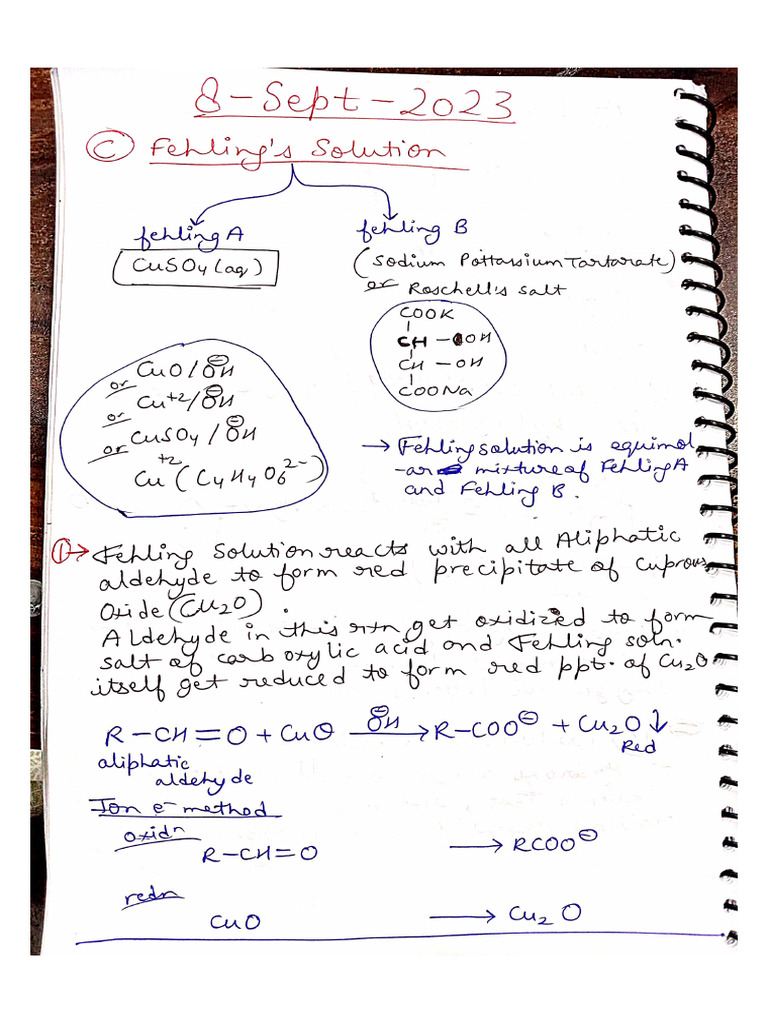 8-Sept-2023
C Fehling's Solution
fehling A fehling B
CuSO4(aq) (Sodium Pottassium Tartarate)
or Roschell's salt
COOK
CH - OH
CH - OH
COONa
CuO/ŌH
or Cu+2/ŌH
or CuSO4/ŌH
or Cu+2(C4H4O6 2-)
→ Fehling solution is equimol
-ar mixture of Fehling A
and Fehling B.
1→ Fehling Solution reacts with all Aliphatic
aldehyde to form red precipitate of Cuprous
Oxide (Cu2O).
Aldehyde in this rxn get oxidized to form
salt of carboxylic acid and Fehling soln.
itself get reduced to form red ppt. of Cu2O
R-CH=O + CuO —ŌH→ R-COO⊖ + Cu2O↓
aliphatic Red
aldehyde
Ion e- method
oxidn
R-CH=O → RCOO⊖
redn
CuO → Cu2O